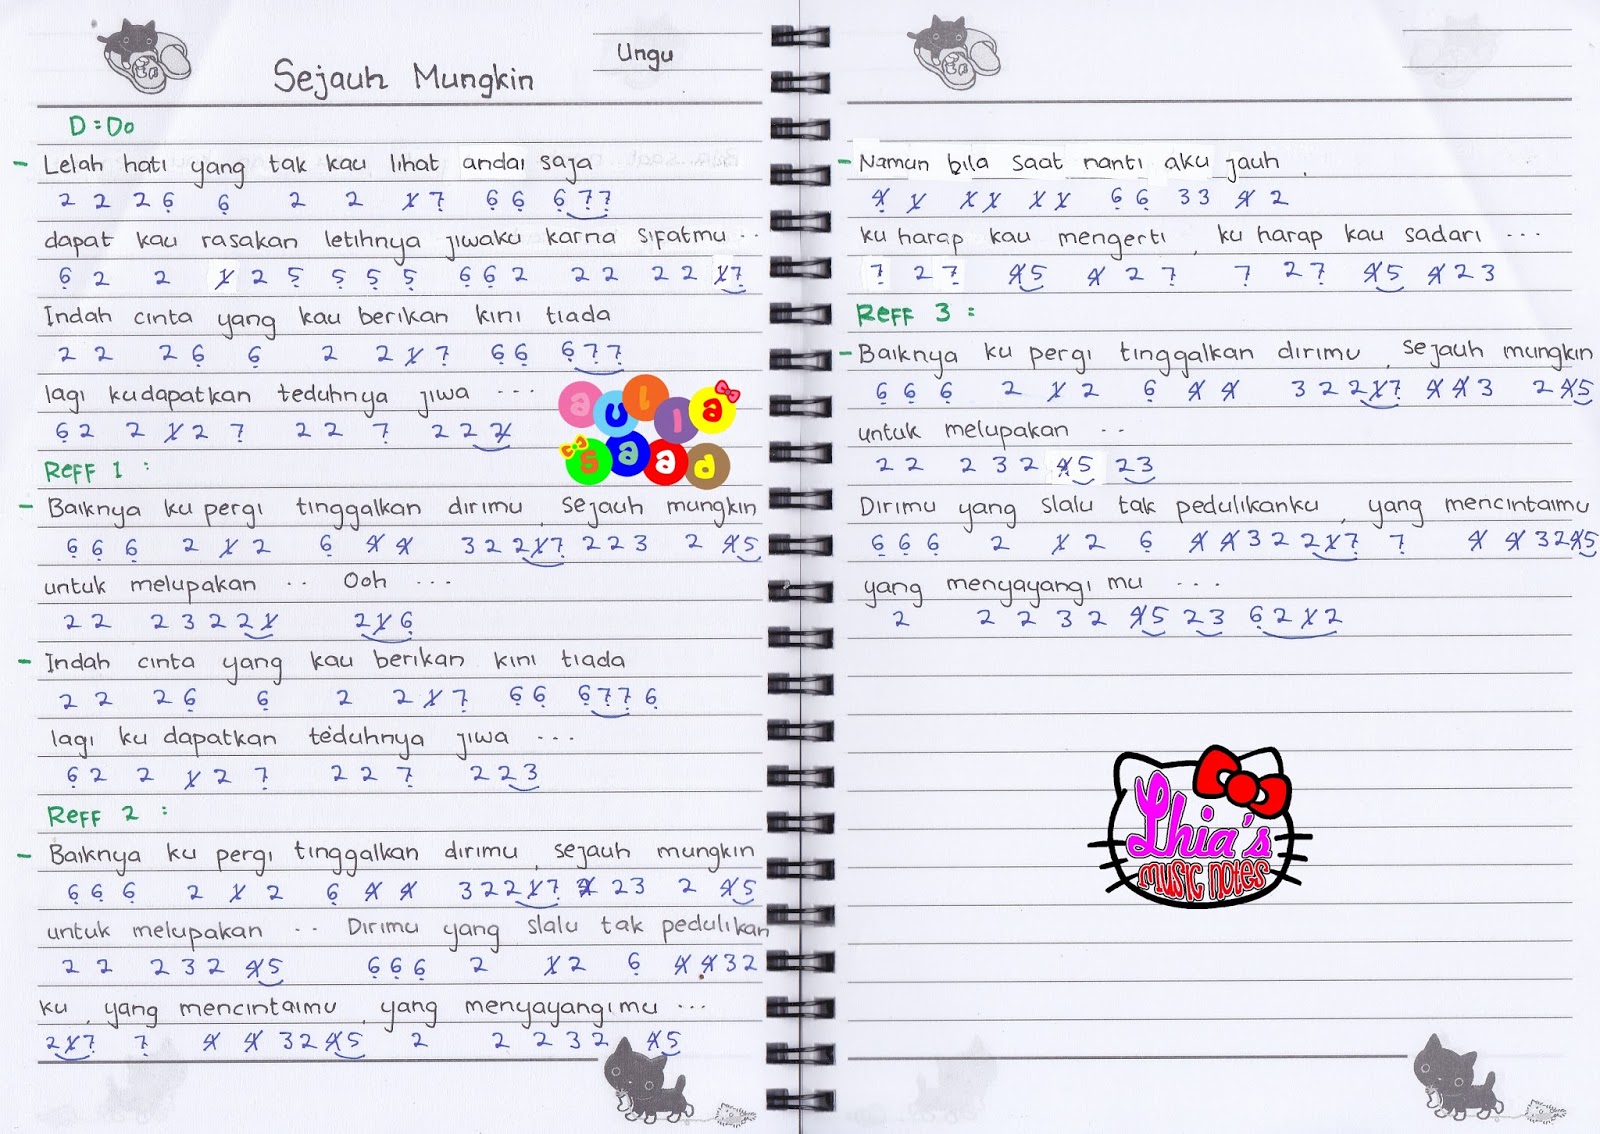 Ungu
Sejauh Mungkin
D = Do
- Lelah hati yang tak kau lihat andai saja
2 2 2 6̣ 6̣ 2 2 1̸ 7̣ 6̣ 6̣ 6̣ 7̣ 7̣
dapat kau rasakan letihnya jiwaku karna sifatmu ..
6̣ 2 2 1̸ 2 5̣ 5̣ 5̣ 5̣ 6̣ 6̣ 2 2 2 2 2 1̸ 7̣
Indah cinta yang kau berikan kini tiada
2 2 2 6̣ 6̣ 2 2 1̸ 7̣ 6̣ 6̣ 6̣ 7̣ 7̣
lagi kudapatkan teduhnya jiwa ...
6̣ 2 2 1̸ 2 7̣ 2 2 7̣ 2 2 2̸
Reff 1 :
- Baiknya ku pergi tinggalkan dirimu, sejauh mungkin
6̣ 6̣ 6̣ 2 1̸ 2 6̣ 4̸ 4̸ 3 2 2 1̸ 7̣ 2 2 3 2 4̸ 5
untuk melupakan .. Ooh ...
2 2 2 3 2 2 1̸ 2 1̸ 6̣
- Indah cinta yang kau berikan kini tiada
2 2 2 6̣ 6̣ 2 2 1̸ 7̣ 6̣ 6̣ 6̣ 7̣ 7̣ 6̣
lagi ku dapatkan teduhnya jiwa ...
6̣ 2 2 1̸ 2 7̣ 2 2 7̣ 2 2 3
Reff 2 :
- Baiknya ku pergi tinggalkan dirimu, sejauh mungkin
6̣ 6̣ 6̣ 2 1̸ 2 6̣ 4̸ 4̸ 3 2 2 1̸ 7̣ 2 3 2 4̸ 5
untuk melupakan .. Dirimu yang slalu tak pedulikan
2 2 2 3 2 4̸ 5 6̣ 6̣ 6̣ 2 1̸ 2 6̣ 4̸ 4̸ 3 2
ku, yang mencintaimu, yang menyayangimu ...
2 1̸ 7̣ 7̣ 4̸ 4̸ 3 2 4̸ 5 2 2 2 3 2 4̸ 5
aulia
saad
- Namun bila saat nanti aku jauh,
4̸ 1̸ 1̸ 1̸ 1̸ 1̸ 6̣ 6̣ 3 3 4̸ 2
ku harap kau mengerti, ku harap kau sadari ...
7̣ 2 7̣ 4̸ 5 4̸ 2 7̣ 7̣ 2 7̣ 4̸ 5 4̸ 2 3
Reff 3 :
- Baiknya ku pergi tinggalkan dirimu, sejauh mungkin
6̣ 6̣ 6̣ 2 1̸ 2 6̣ 4̸ 4̸ 3 2 2 1̸ 7̣ 4̸ 4̸ 3 2 4̸ 5
untuk melupakan ..
2 2 2 3 2 4̸ 5 2 3
Dirimu yang slalu tak pedulikanku, yang mencintaimu
6̣ 6̣ 6̣ 2 1̸ 2 6̣ 4̸ 4̸ 3 2 2 1̸ 7̣ 7̣ 4̸ 4̸ 3 2 4̸ 5
yang menyayangi mu ...
2 2 2 3 2 4̸ 5 2 3 6̣ 2 1̸ 2
Lhia's
MUSIC NOTES